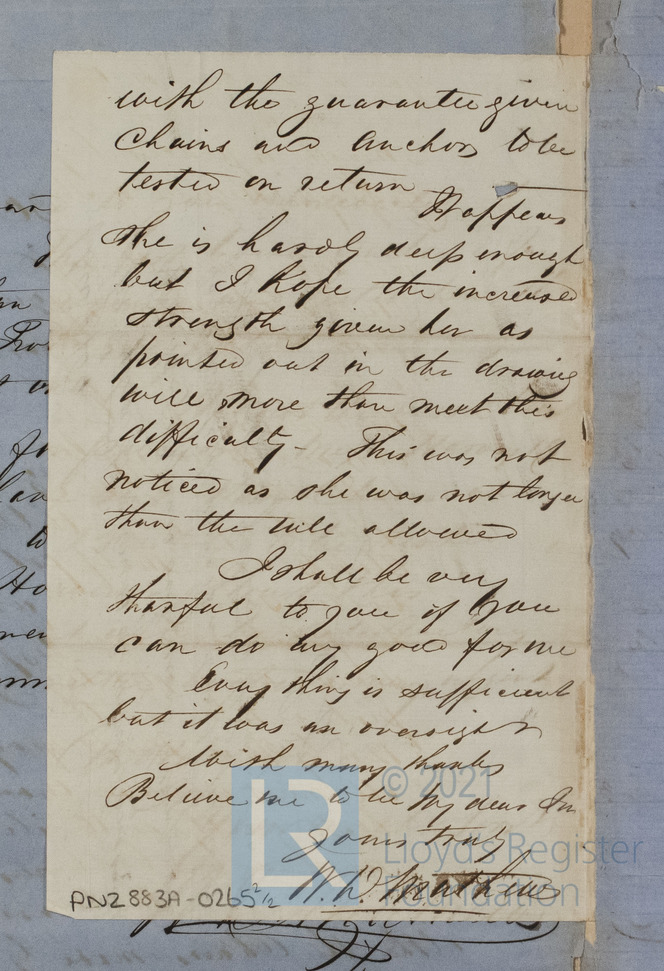 with the guarantee given
Chains and Anchors to be
tested on return
It appears
She is hardly deep enough
but I hope the increased
strength given her as
pointed out in the drawing
will more than meet this
difficulty - This was not
noticed as she was not longer
than the rule allowed
I shall be very
thankful to you if you
can do any good for me
Every thing is sufficient
but it was an oversight
With many thanks
Believe me to be My dear Sir
yours truly
W. H. Mathews
PN2883A-0265 2/2
© 2021
LR
Lloyd's Register
Foundation